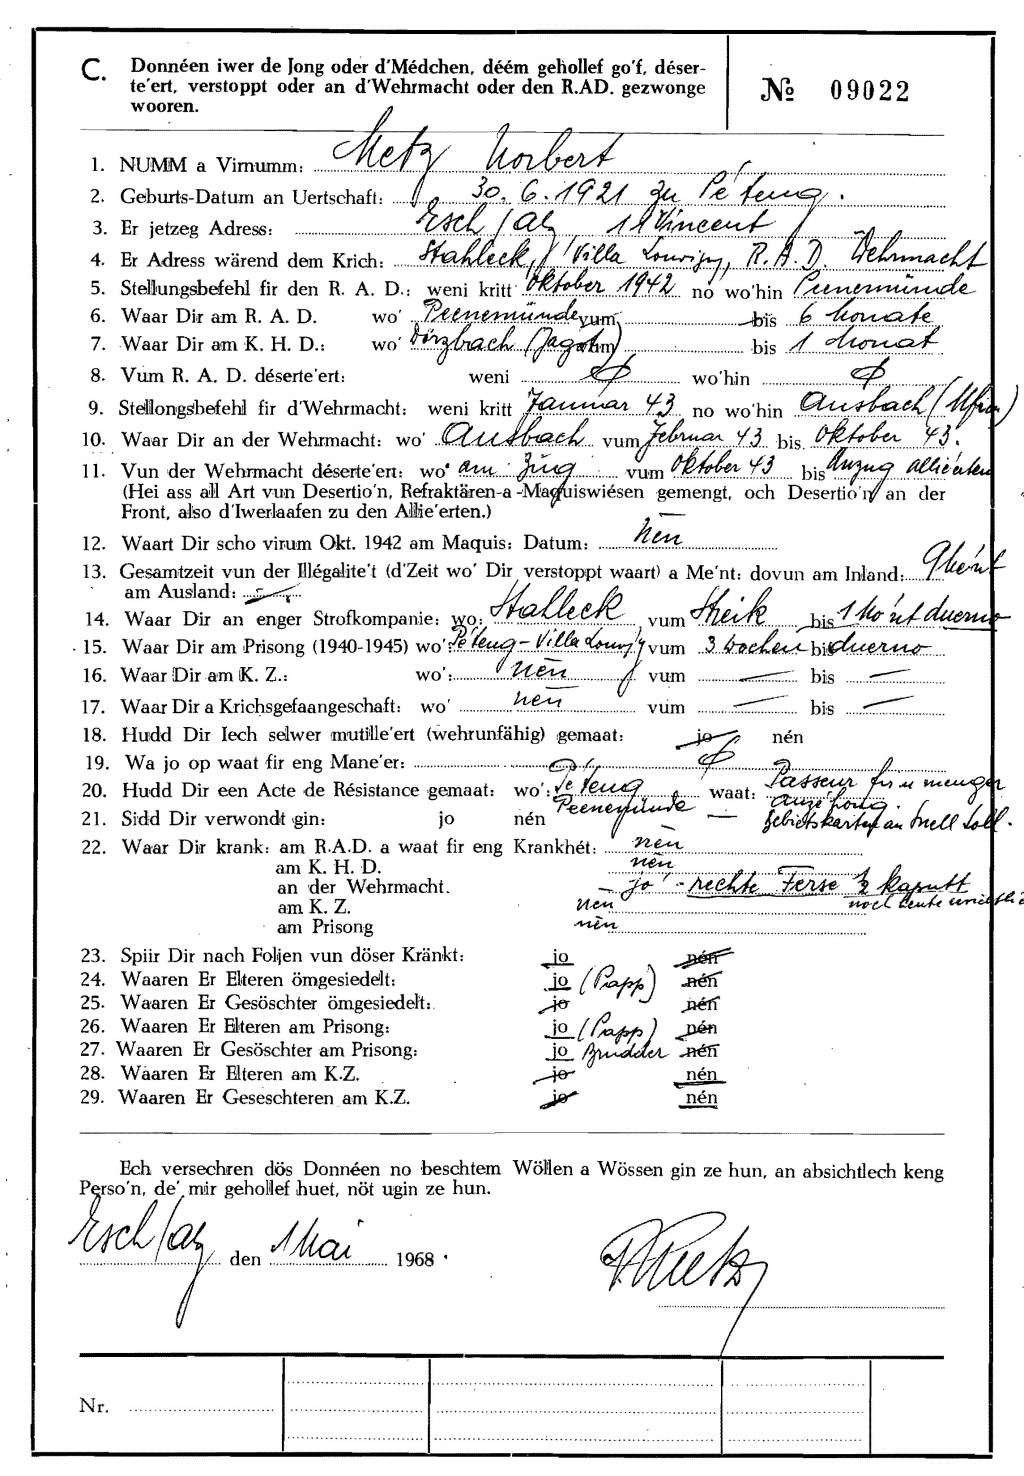 C. Donnéen iwer de Jong oder d'Médchen, déém gehollef go'f, déser-
te'ert, verstoppt oder an d'Wehrmacht oder den R.AD. gezwonge
wooren.
№ 09022
1. NUMM a Virnumm: Metz Norbert
2. Geburts-Datum an Uertschaft: 30. 6. 1921 zu Péteng.
3. Er jetzeg Adress: Esch/Alz 11 Vincent
4. Er Adress wärend dem Krich: Stahleck, Villa Louvigny, R.A.D. Wehrmacht
5. Stellungsbefehl fir den R. A. D.: weni kritt Oktober 1942 no wo'hin Peenemünde
6. Waar Dir am R. A. D. wo' Peenemünde vum bis 6 Monate
7. Waar Dir am K. H. D.: wo' Dörzbach (Jagst) vum bis 1 Monat
8. Vum R. A. D. déserte'ert: weni ϕ wo'hin ϕ
9. Stellongsbefehl fir d'Wehrmacht: weni kritt Januar 43 no wo'hin Ansbach
10. Waar Dir an der Wehrmacht: wo' Ansbach vum Februar 43 bis Oktober 43.
11. Vun der Wehrmacht déserte'ert: wo' am Zug vum Oktober 43 bis Anzug
(Hei ass all Art vun Desertio'n, Refraktären-a -Maquiswiésen gemengt, och Desertio'n an der
Front, also d'Iwerlaafen zu den Allie'erten.)
12. Waart Dir scho virum Okt. 1942 am Maquis: Datum: Nén
13. Gesamtzeit vun der Illégalite't (d'Zeit wo' Dir verstoppt waart) a Me'nt: dovun am Inland:
am Ausland:
14. Waar Dir an enger Strofkompanie: wo: Stalleck vum Streik bis 1 Mo'nt duerno
15. Waar Dir am Prisong (1940-1945) wo': Péteng-Villa Louvigny vum 3 Wochen bis duerno
16. Waar Dir am K. Z.: wo': nén vum — bis —
17. Waar Dir a Krichsgefaangeschaft: wo' nén vum — bis —
18. Hudd Dir Iech selwer mutille'ert (wehrunfähig) gemaat: jo nén
19. Wa jo op waat fir eng Mane'er: ϕ
20. Hudd Dir een Acte de Résistance gemaat: wo': Péteng waat: Passeur fir
21. Sidd Dir verwondt gin: jo nén Peenemünde — Gebietskarten an
22. Waar Dir krank: am R.A.D. a waat fir eng Krankhét: nén
am K. H. D. nén
an der Wehrmacht. – jo' - rechte Ferse ½ kaputt
am K. Z. nen noch heute
am Prisong nén
23. Spiir Dir nach Foljen vun döser Kränkt: jo nén
24. Waaren Er Elteren ömgesiedelt: jo (Papp) nén
25. Waaren Er Gesöschter ömgesiedelt: jo nén
26. Waaren Er Elteren am Prisong: jo (Papp) nén
27. Waaren Er Gesöschter am Prisong: jo Brudder nén
28. Waaren Er Elteren am K.Z. jo nén
29. Waaren Er Geseschteren am K.Z. jo nén
Ech versechren dös Donnéen no beschtem Wöllen a Wössen gin ze hun, an absichtlech keng
Perso'n, de' mir gehollef huet, nöt ugin ze hun.
Esch/Alz den 1 Mai 1968.
Metz
Nr.